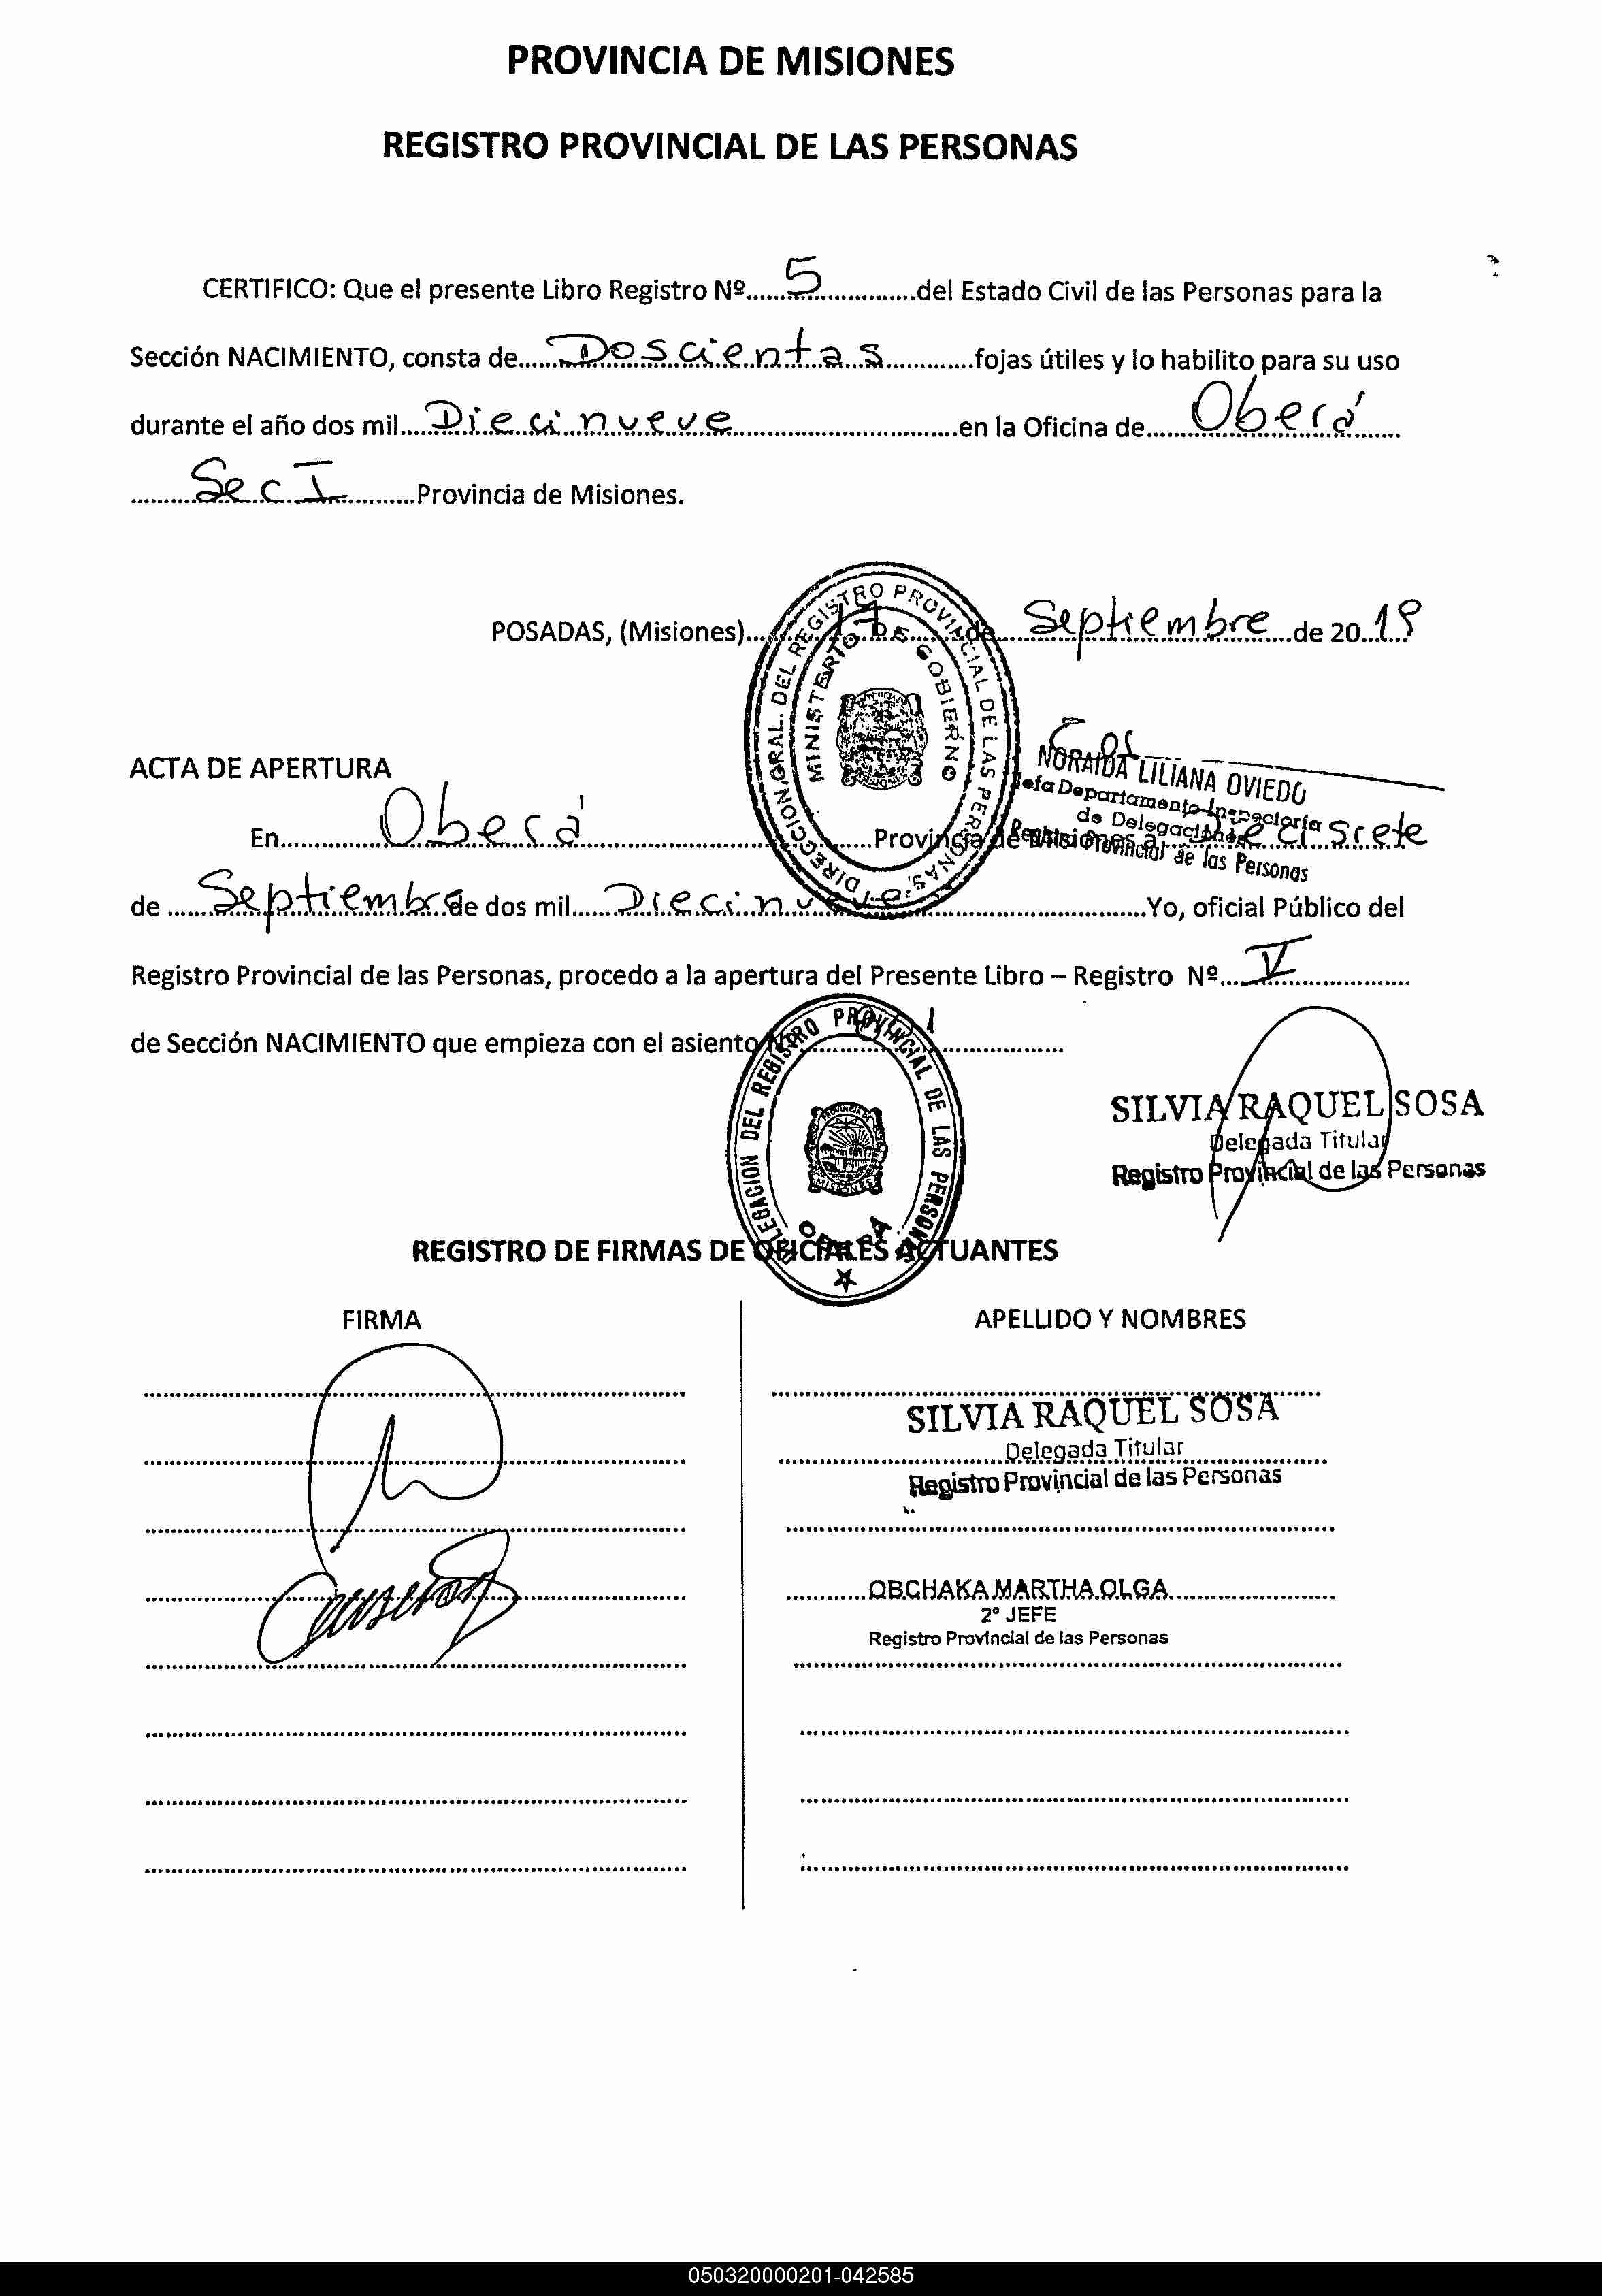 PROVINCIA DE MISIONES
REGISTRO PROVINCIAL DE LAS PERSONAS
CERTIFICO: Que el presente Libro Registro Nº......5...............del Estado Civil de las Personas para la
Sección NACIMIENTO, consta de......Doscientas............fojas útiles y lo habilito para su uso
durante el año dos mil.....Diecinueve..............................en la Oficina de......Oberá......
..........Sec I..........Provincia de Misiones.
POSADAS, (Misiones)....17....de....Septiembre....de 20..19
DIRECCION GRAL. DEL REGISTRO PROVINCIAL DE LAS PERSONAS
MINISTERIO DE GOBIERNO
NORAIDA LILIANA OVIEDO
Jefa Departamento Inspectoría
de Delegaciones
Registro Provincial de las Personas
ACTA DE APERTURA
En..............Oberá..............................Provincia de Misiones a.....Diecisiete
de ......Septiembre de dos mil......Diecinueve..............................Yo, oficial Público del
Registro Provincial de las Personas, procedo a la apertura del Presente Libro – Registro Nº....V....................
de Sección NACIMIENTO que empieza con el asiento Nº....................
DELEGACION DEL REGISTRO PROVINCIAL DE LAS PERSONAS
PROVINCIA DE
MISIONES
OBERA
SILVIA RAQUEL SOSA
Delegada Titular
Registro Provincial de las Personas
REGISTRO DE FIRMAS DE OFICIALES ACTUANTES
FIRMA
APELLIDO Y NOMBRES
SILVIA RAQUEL SOSA
Delegada Titular
Registro Provincial de las Personas
OBCHAKA MARTHA OLGA
2º JEFE
Registro Provincial de las Personas
050320000201-042585